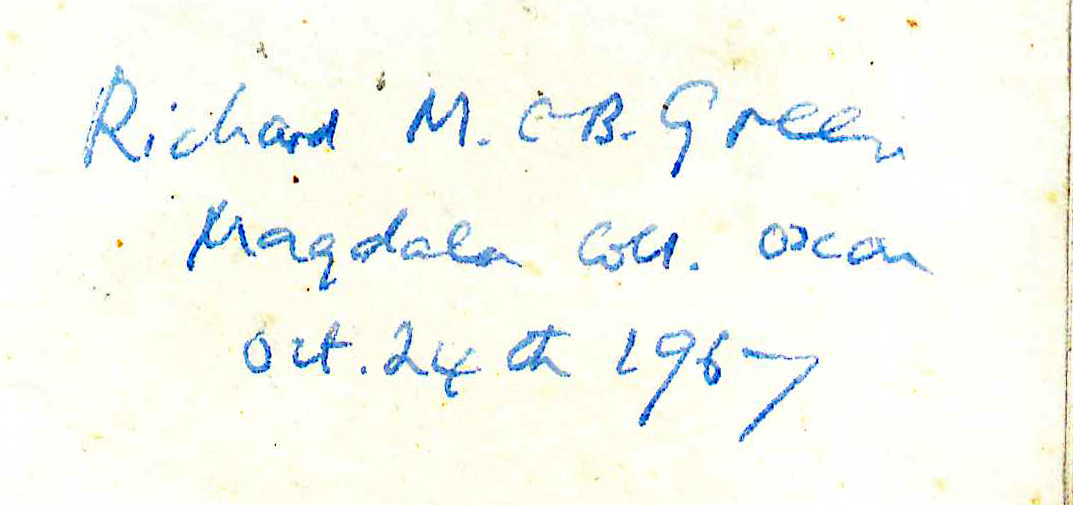 Richard M. C B. Green
Magdalen Coll. Oxon
Oct. 24th 1967